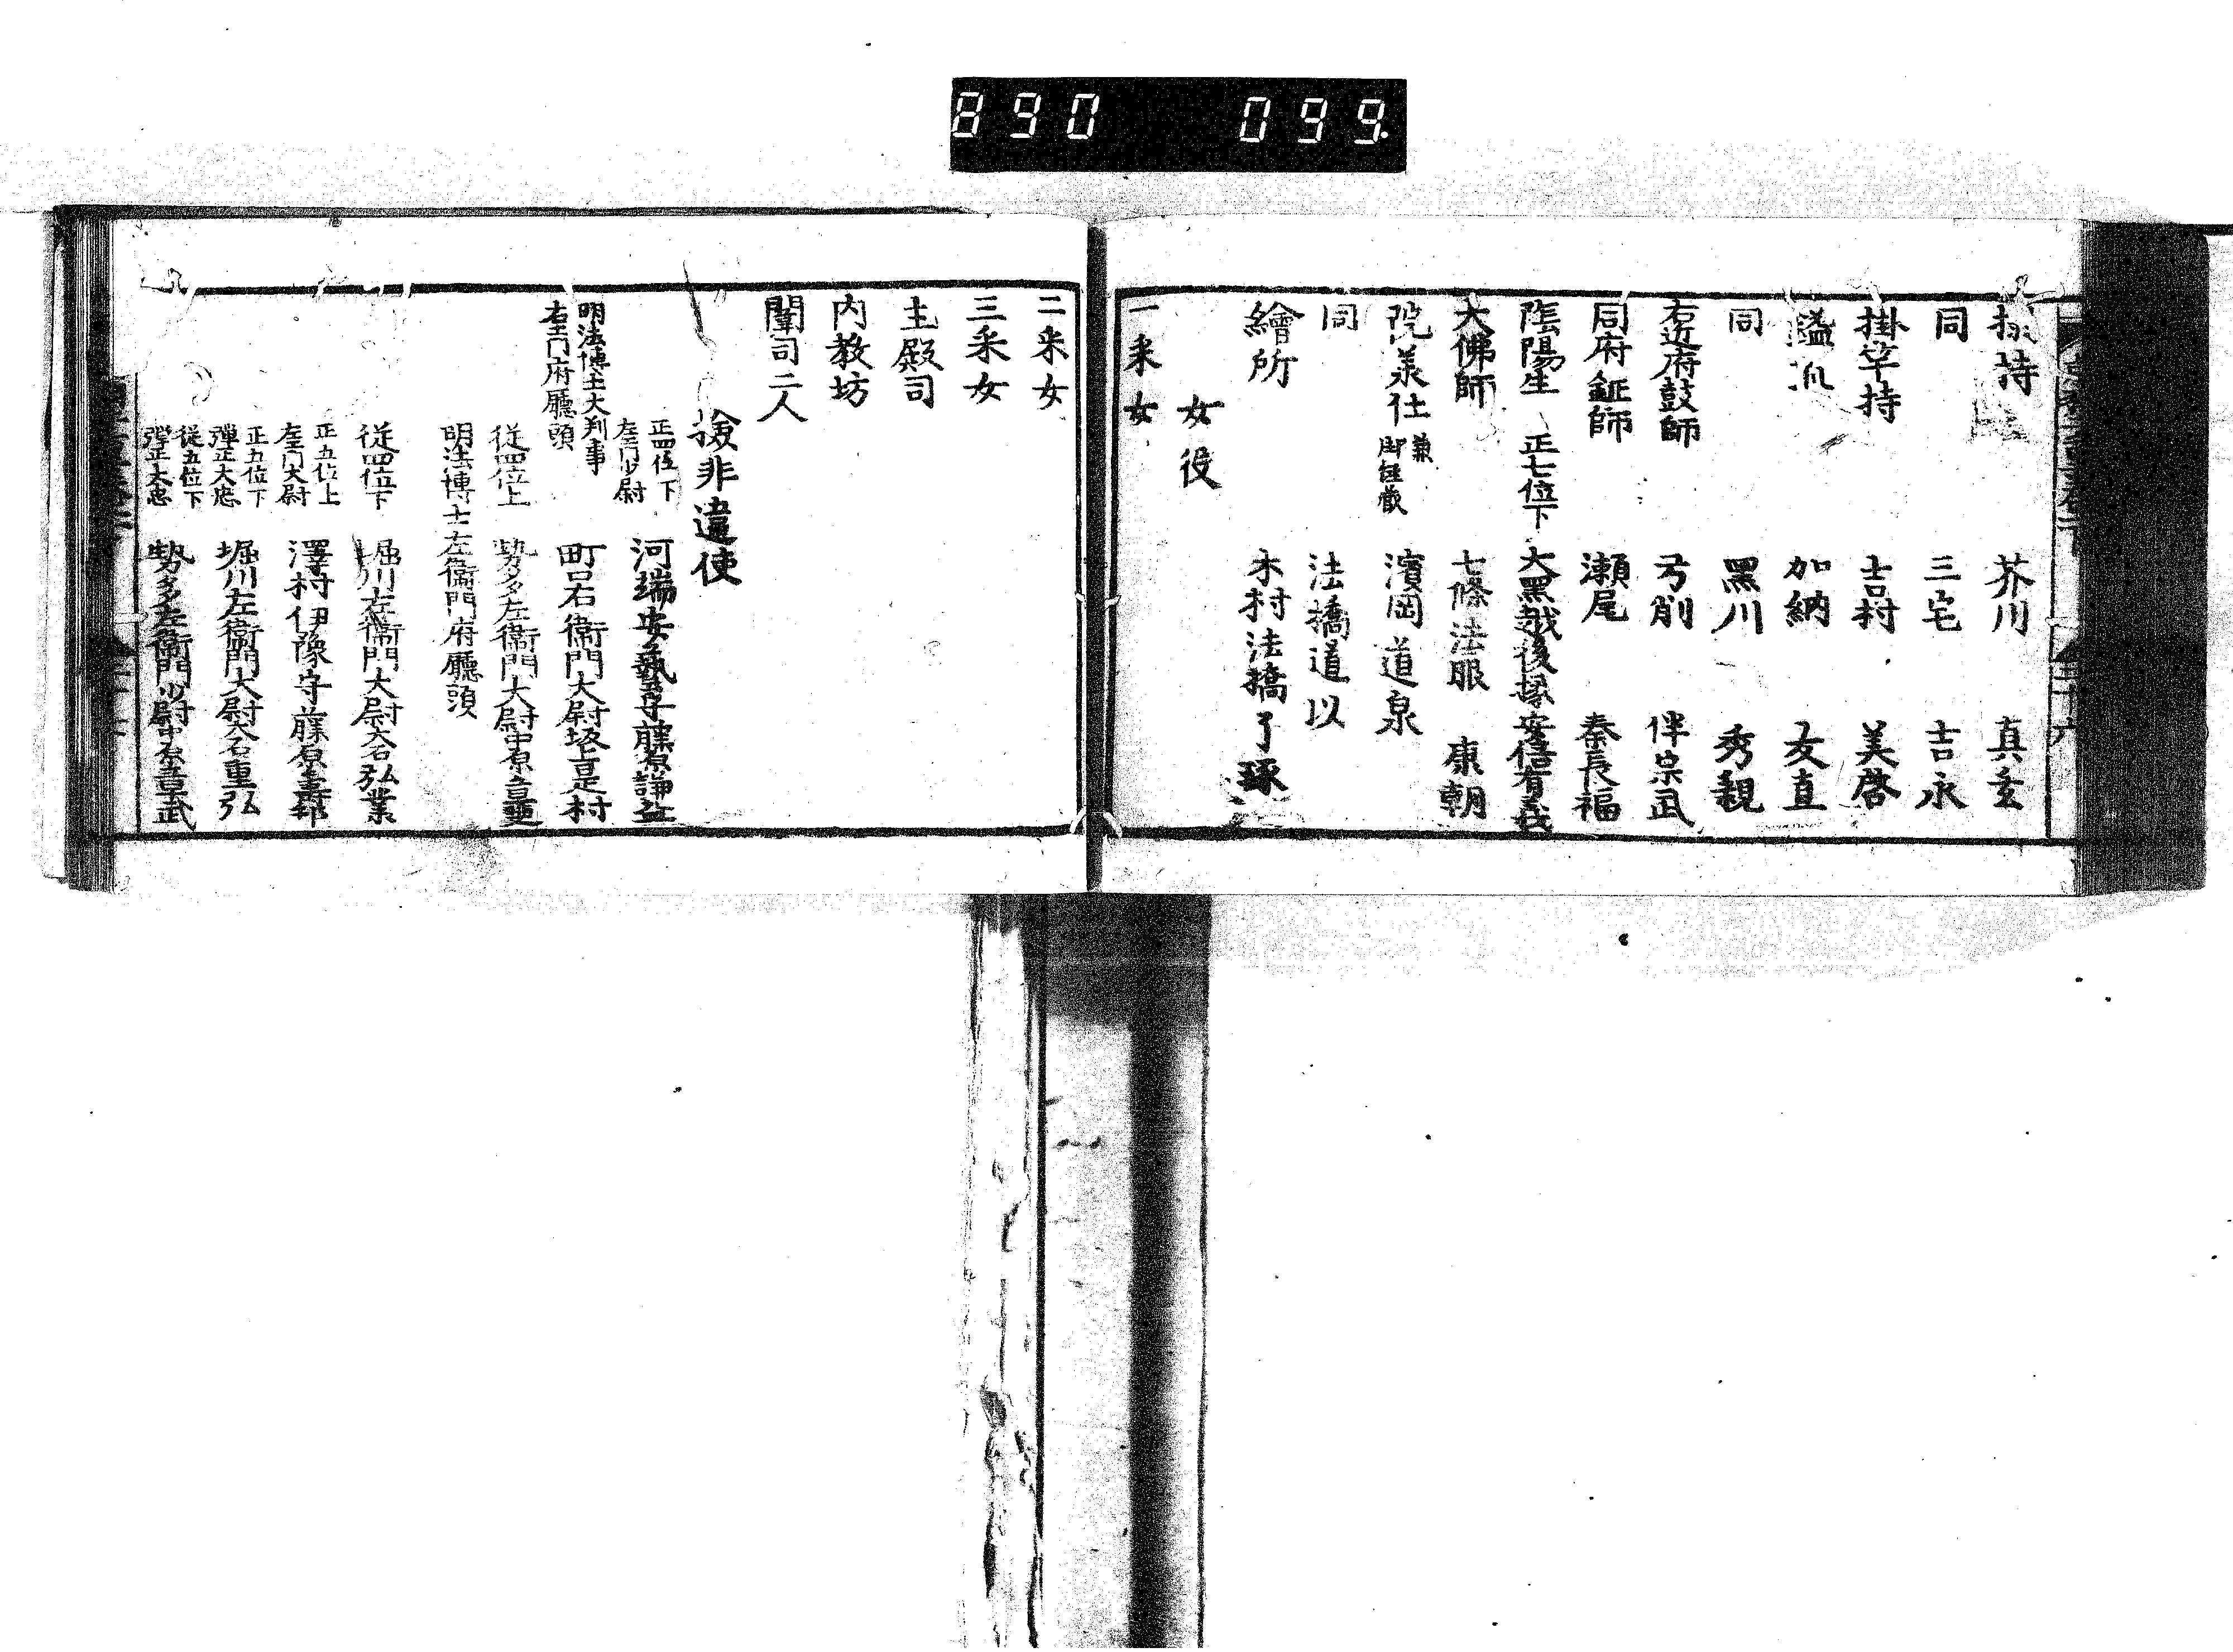 890 099
持 芥川 真玄
同 三宅 吉永
掛竿持 吉村 美啓
加納 友直
同 黑川 秀親
右近府鼓師 弓削 伴宗武
同府鉦師 瀬尾 秦長福
陰陽生 正七位下 大黑越後掾 安倍有義
大佛師 七條法眼 康朝
院承仕 兼御経蔵 濱岡 道泉
同 法橋道以
繪所 木村法橋了琢
女役
一釆女
二釆女
三釆女
主殿司
内教坊
闈司二人
撿非違使
正四位下 左衛門少尉 河端安藝守藤原謙益
明法博士大判事 右衛門府廳頭 町口右衛門大尉坂上是村
従四位上 勢多左衛門大尉中原章
明法博士左衛門府廳頭
従四位下 堀川左衛門大尉大石弘業
正五位上 左衛門大尉 澤村伊豫守藤原壽
正五位下 彈正大忠 堀川左衛門大尉大石重弘
従五位下 彈正大忠 勢多左衛門少尉中原章武